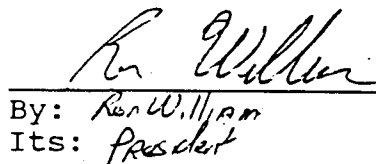 Ron William
By: Ron William
Its: President